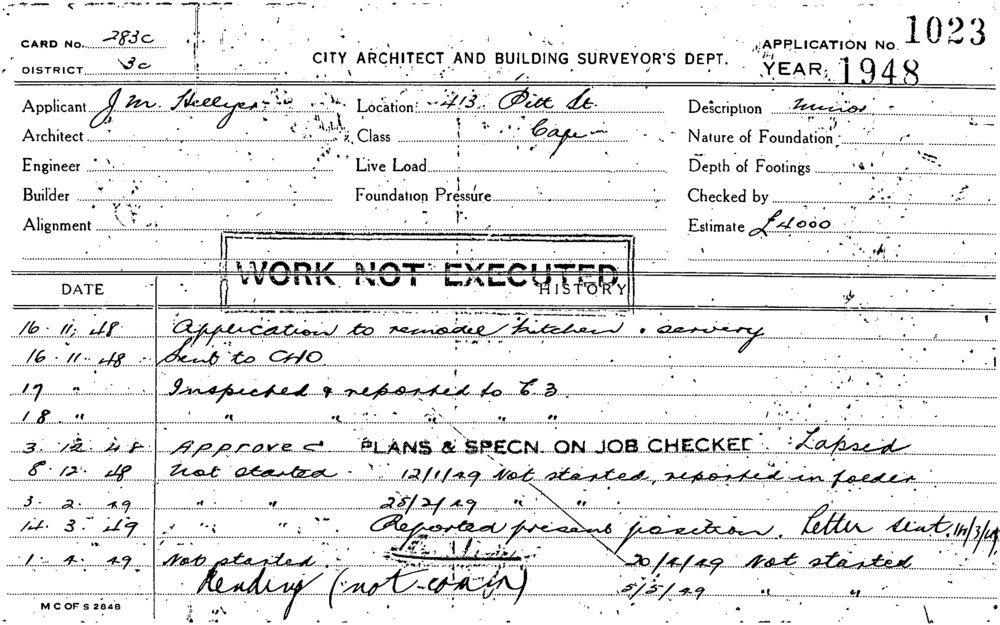 CARD No. 283c
DISTRICT 3c
CITY ARCHITECT AND BUILDING SURVEYOR'S DEPT.
APPLICATION No. 1023
YEAR. 1948
Applicant J M. Hillyer Location: 413 Pitt St. Description minor
Architect Class Cafe Nature of Foundation
Engineer Live Load Depth of Footings
Builder Foundation Pressure Checked by
Alignment Estimate £4000
WORK NOT EXECUTED
DATE HISTORY
16. 11. 48 Application to remodel kitchen & servery
16. 11. 48 Sent to CHO
17 " Inspected & reported to C 3
18 " " " " " "
3. 12. 48 Approved PLANS & SPECN. ON JOB CHECKED Lapsed
8. 12. 48 Not started 12/1/49 Not started, reported in folder
3. 2. 49 " " 25/2/49 " "
14. 3. 49 " " Reported present position. Letter sent.
1. 4. 49 Not started. 20/4/49 Not started
Pending (not 5/5/49 " "
M C OF S 2848